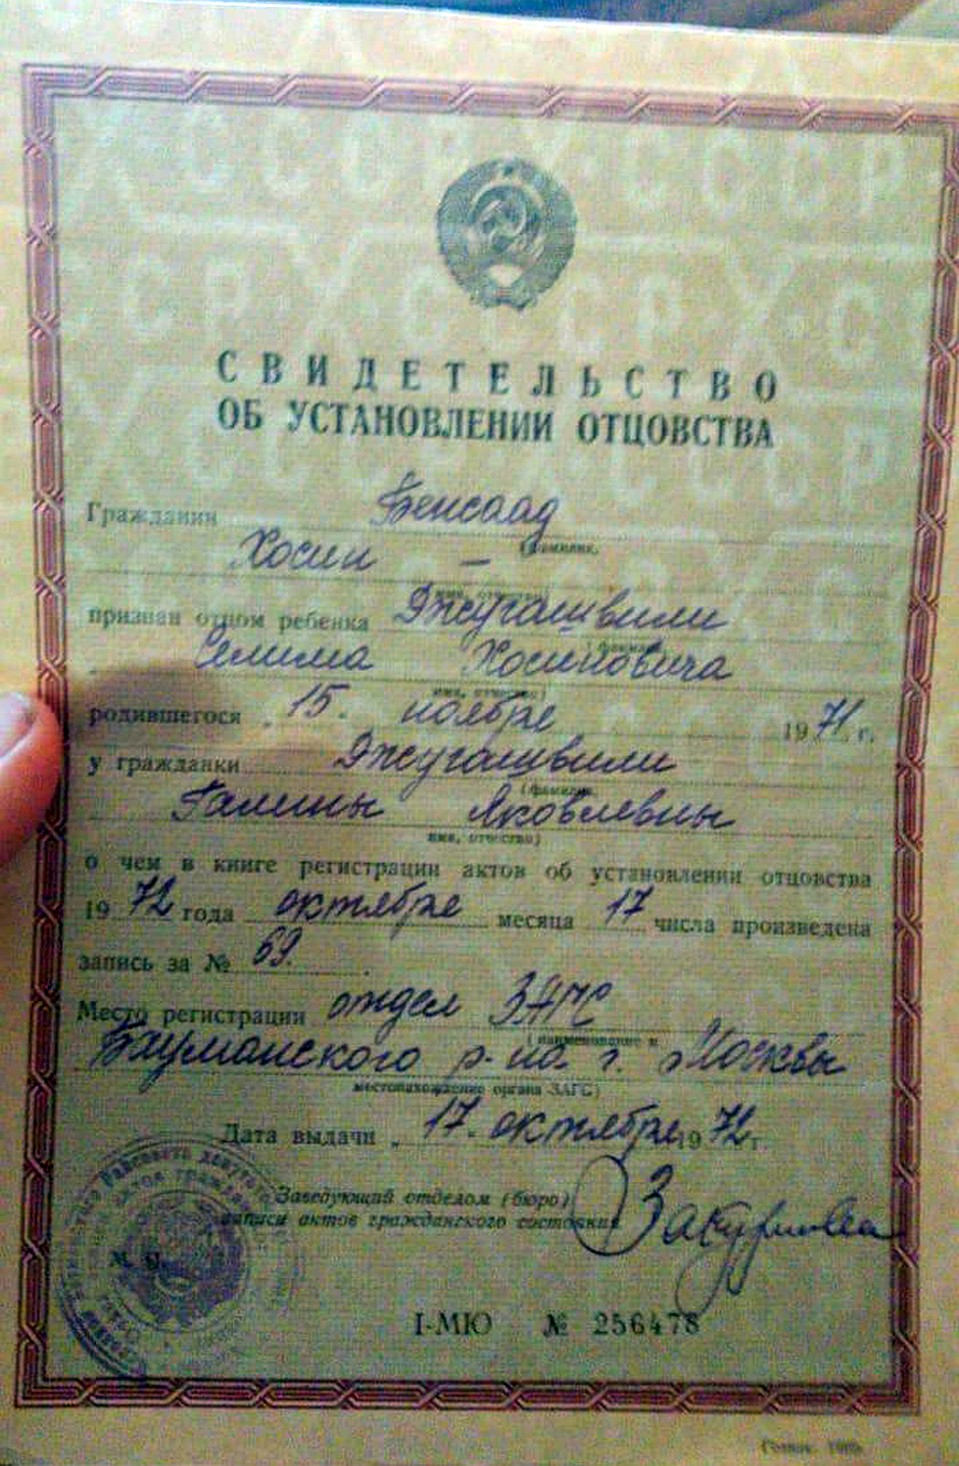 СВИДЕТЕЛЬСТВО
ОБ УСТАНОВЛЕНИИ ОТЦОВСТВА
Гражданин Бенсаад
(фамилия,
Хосин —
имя, отчество)
признан отцом ребенка Джугашвили
(фамилия,
Селима Хосиновича
имя, отчество)
родившегося „ 15. ноября 1971 г.
у гражданки Джугашвили
(фамилия,
Галины Яковлевны
имя, отчество)
о чем в книге регистрации актов об установлении отцовства
1972 года октября месяца 17 числа произведена
запись за № 69.
Место регистрации отдел ЗАГС
(наименование и
Бауманского р-на г. Москвы
местонахождение органа ЗАГС)
Дата выдачи „ 17. октября 1972 г.
Заведующий отделом (бюро)
записи актов гражданского состояния
М. П.
I-МЮ № 256478